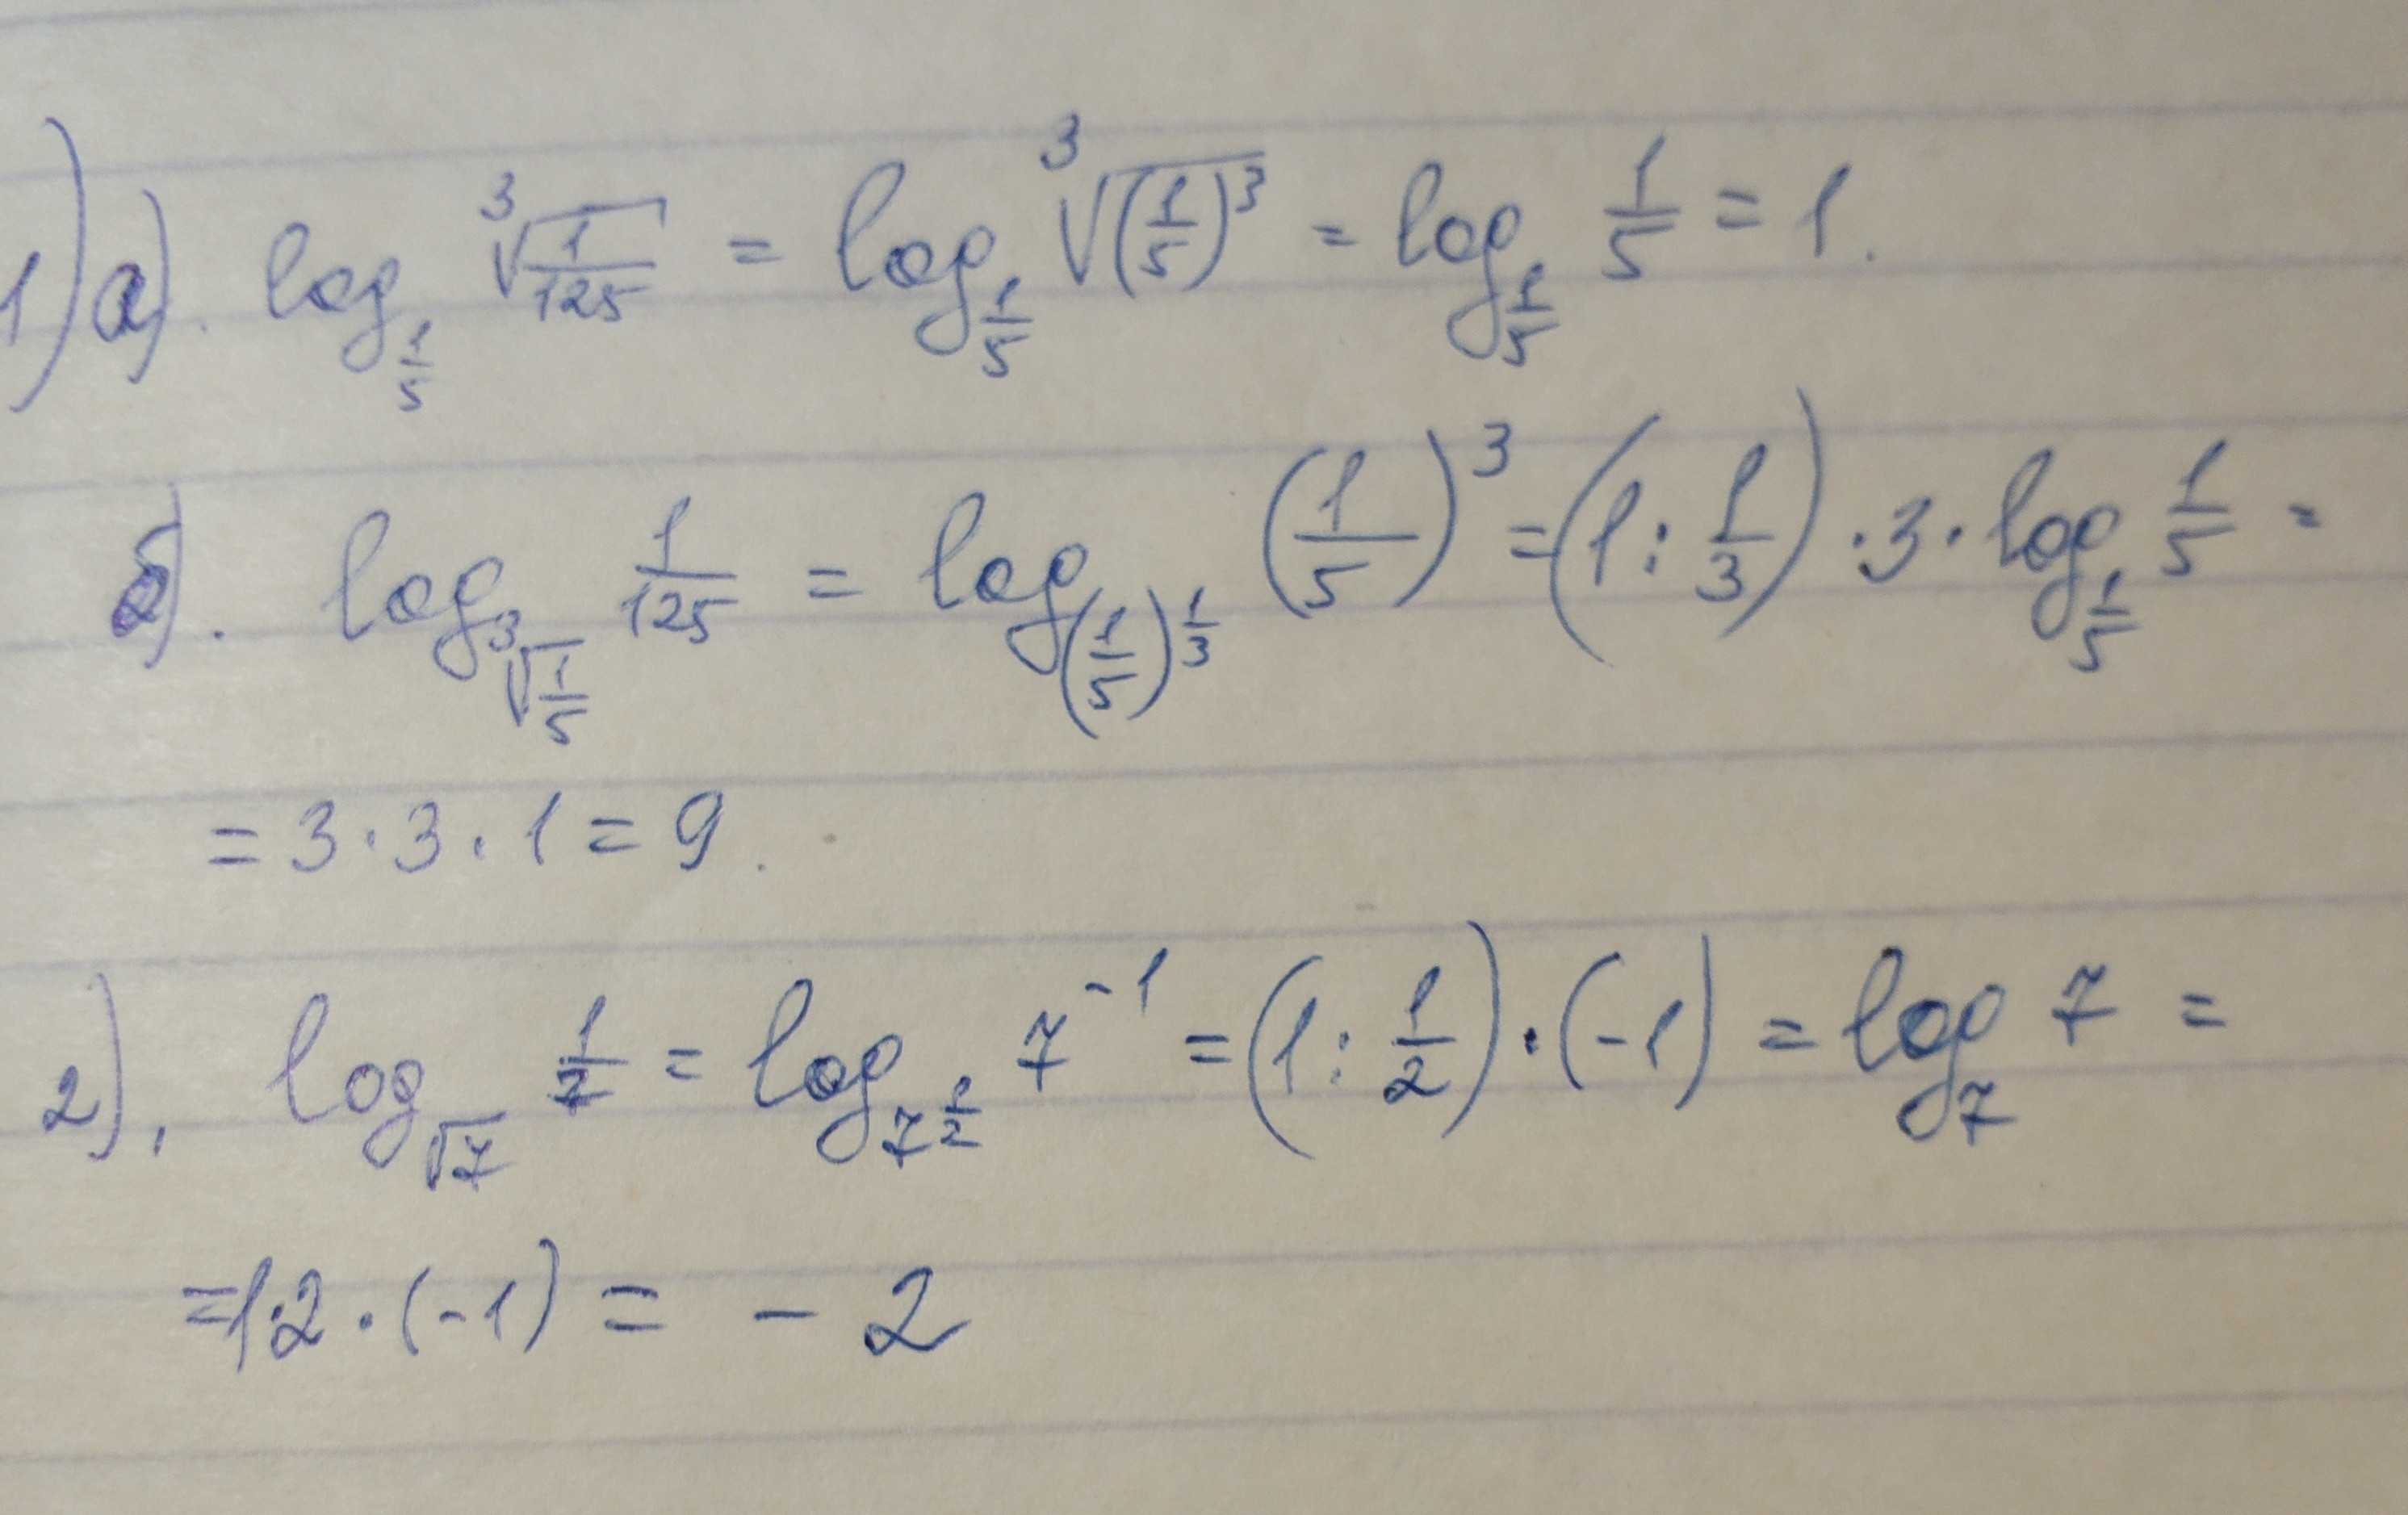 1) а). log_{1/5} ∛(1/125) = log_{1/5} ∛((1/5)^3) = log_{1/5} 1/5 = 1.
б). log_{∛(1/5)} 1/125 = log_{(1/5)^{1/3}} (1/5)^3 = (1 : 1/3) · 3 · log_{1/5} 1/5 =
= 3 · 3 · 1 = 9.
2). log_{√7} 1/7 = log_{7^{1/2}} 7^{-1} = (1 : 1/2) · (-1) = log_7 7 =
= 1·2 · (-1) = - 2